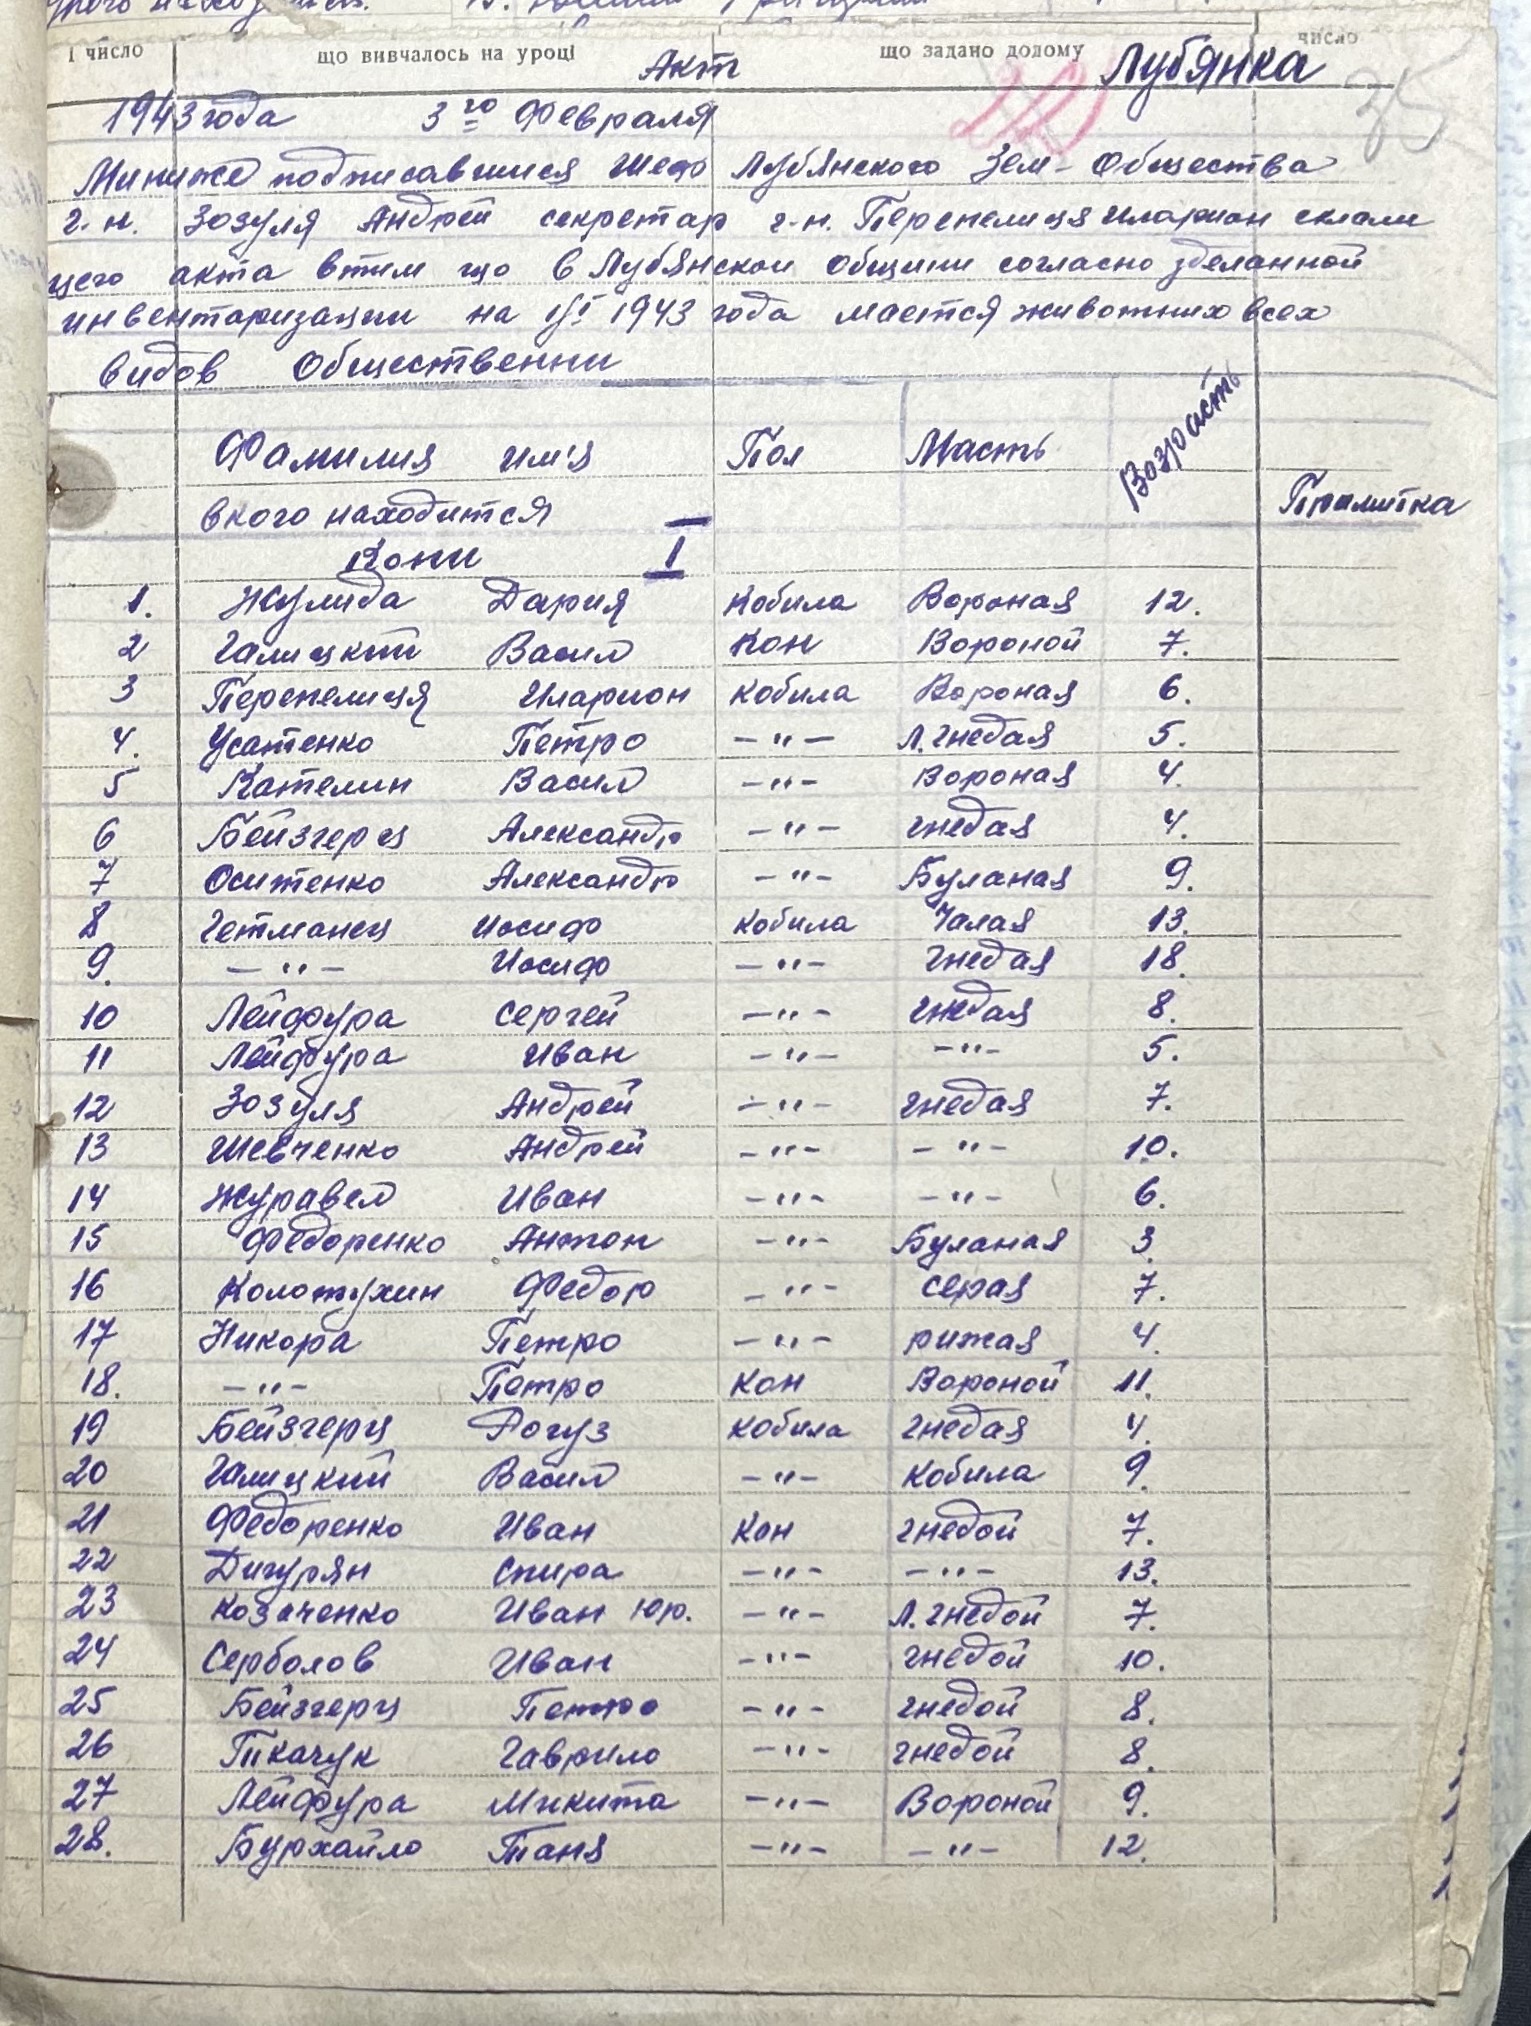 І число що вивчалось на уроці що задано додому число
Акт Лубянка 35
1943 года 3го Февраля
Мининже подписавшися Шеф Лубянского Зем-Общества
г.н. Зозуля Андрей секретар г-н. Перепелиця Иларион склали
цего акта втим що в Лубянскои Общини согласно зделанной
инвентаризации на 1943 года мается животних всех
видов Общественни
Фамилия им'я Пол Масть Возрасть
вкого находится Примитка
Кони I
1. Жулида Дария Кобила Вороная 12.
2 Галицкий Васил Кон Вороной 7.
3 Перепелиця Иларион Кобила Вороная 6.
4. Усатенко Петро —"— Л. гнедая 5.
5 Кателин Васил —"— Вороная 4.
6 Бейзгерц Александр —"— гнедая 4.
7 Оситенко Александр —"— Буланая 9.
8 Гетманец Иосиф Кобила Чалая 13.
9. —"— Иосиф —"— Гнедая 18.
10 Лейфура Сергей —"— гнедая 8.
11 Лейфура Иван —"— —"— 5.
12 Зозуля Андрей —"— гнедая 7.
13 Шевченко Андрей —"— —"— 10.
14 Журавел Иван —"— —"— 6.
15 Федоренко Антон —"— Буланая 3.
16 Колотухин Федор —"— серая 7.
17 Никора Петро —"— рижая 4.
18. —"— Петро Кон Вороной 11.
19 Бейзгерц Рогуз Кобила гнедая 4.
20 Галицкий Васил —"— Кобила 9.
21 Федоренко Иван Кон гнедой 7.
22 Дигурян Спира —"— —"— 13.
23 Козаченко Иван Юр. —"— Л. гнедой 7.
24 Серболов Иван —"— гнедой 10.
25 Бейзгерц Петро —"— гнедой 8.
26 Ткачук Гаврило —"— гнедой 8.
27 Лейфура Микита —"— Вороной 9.
28. Бурхайло Таня —"— —"— 12.